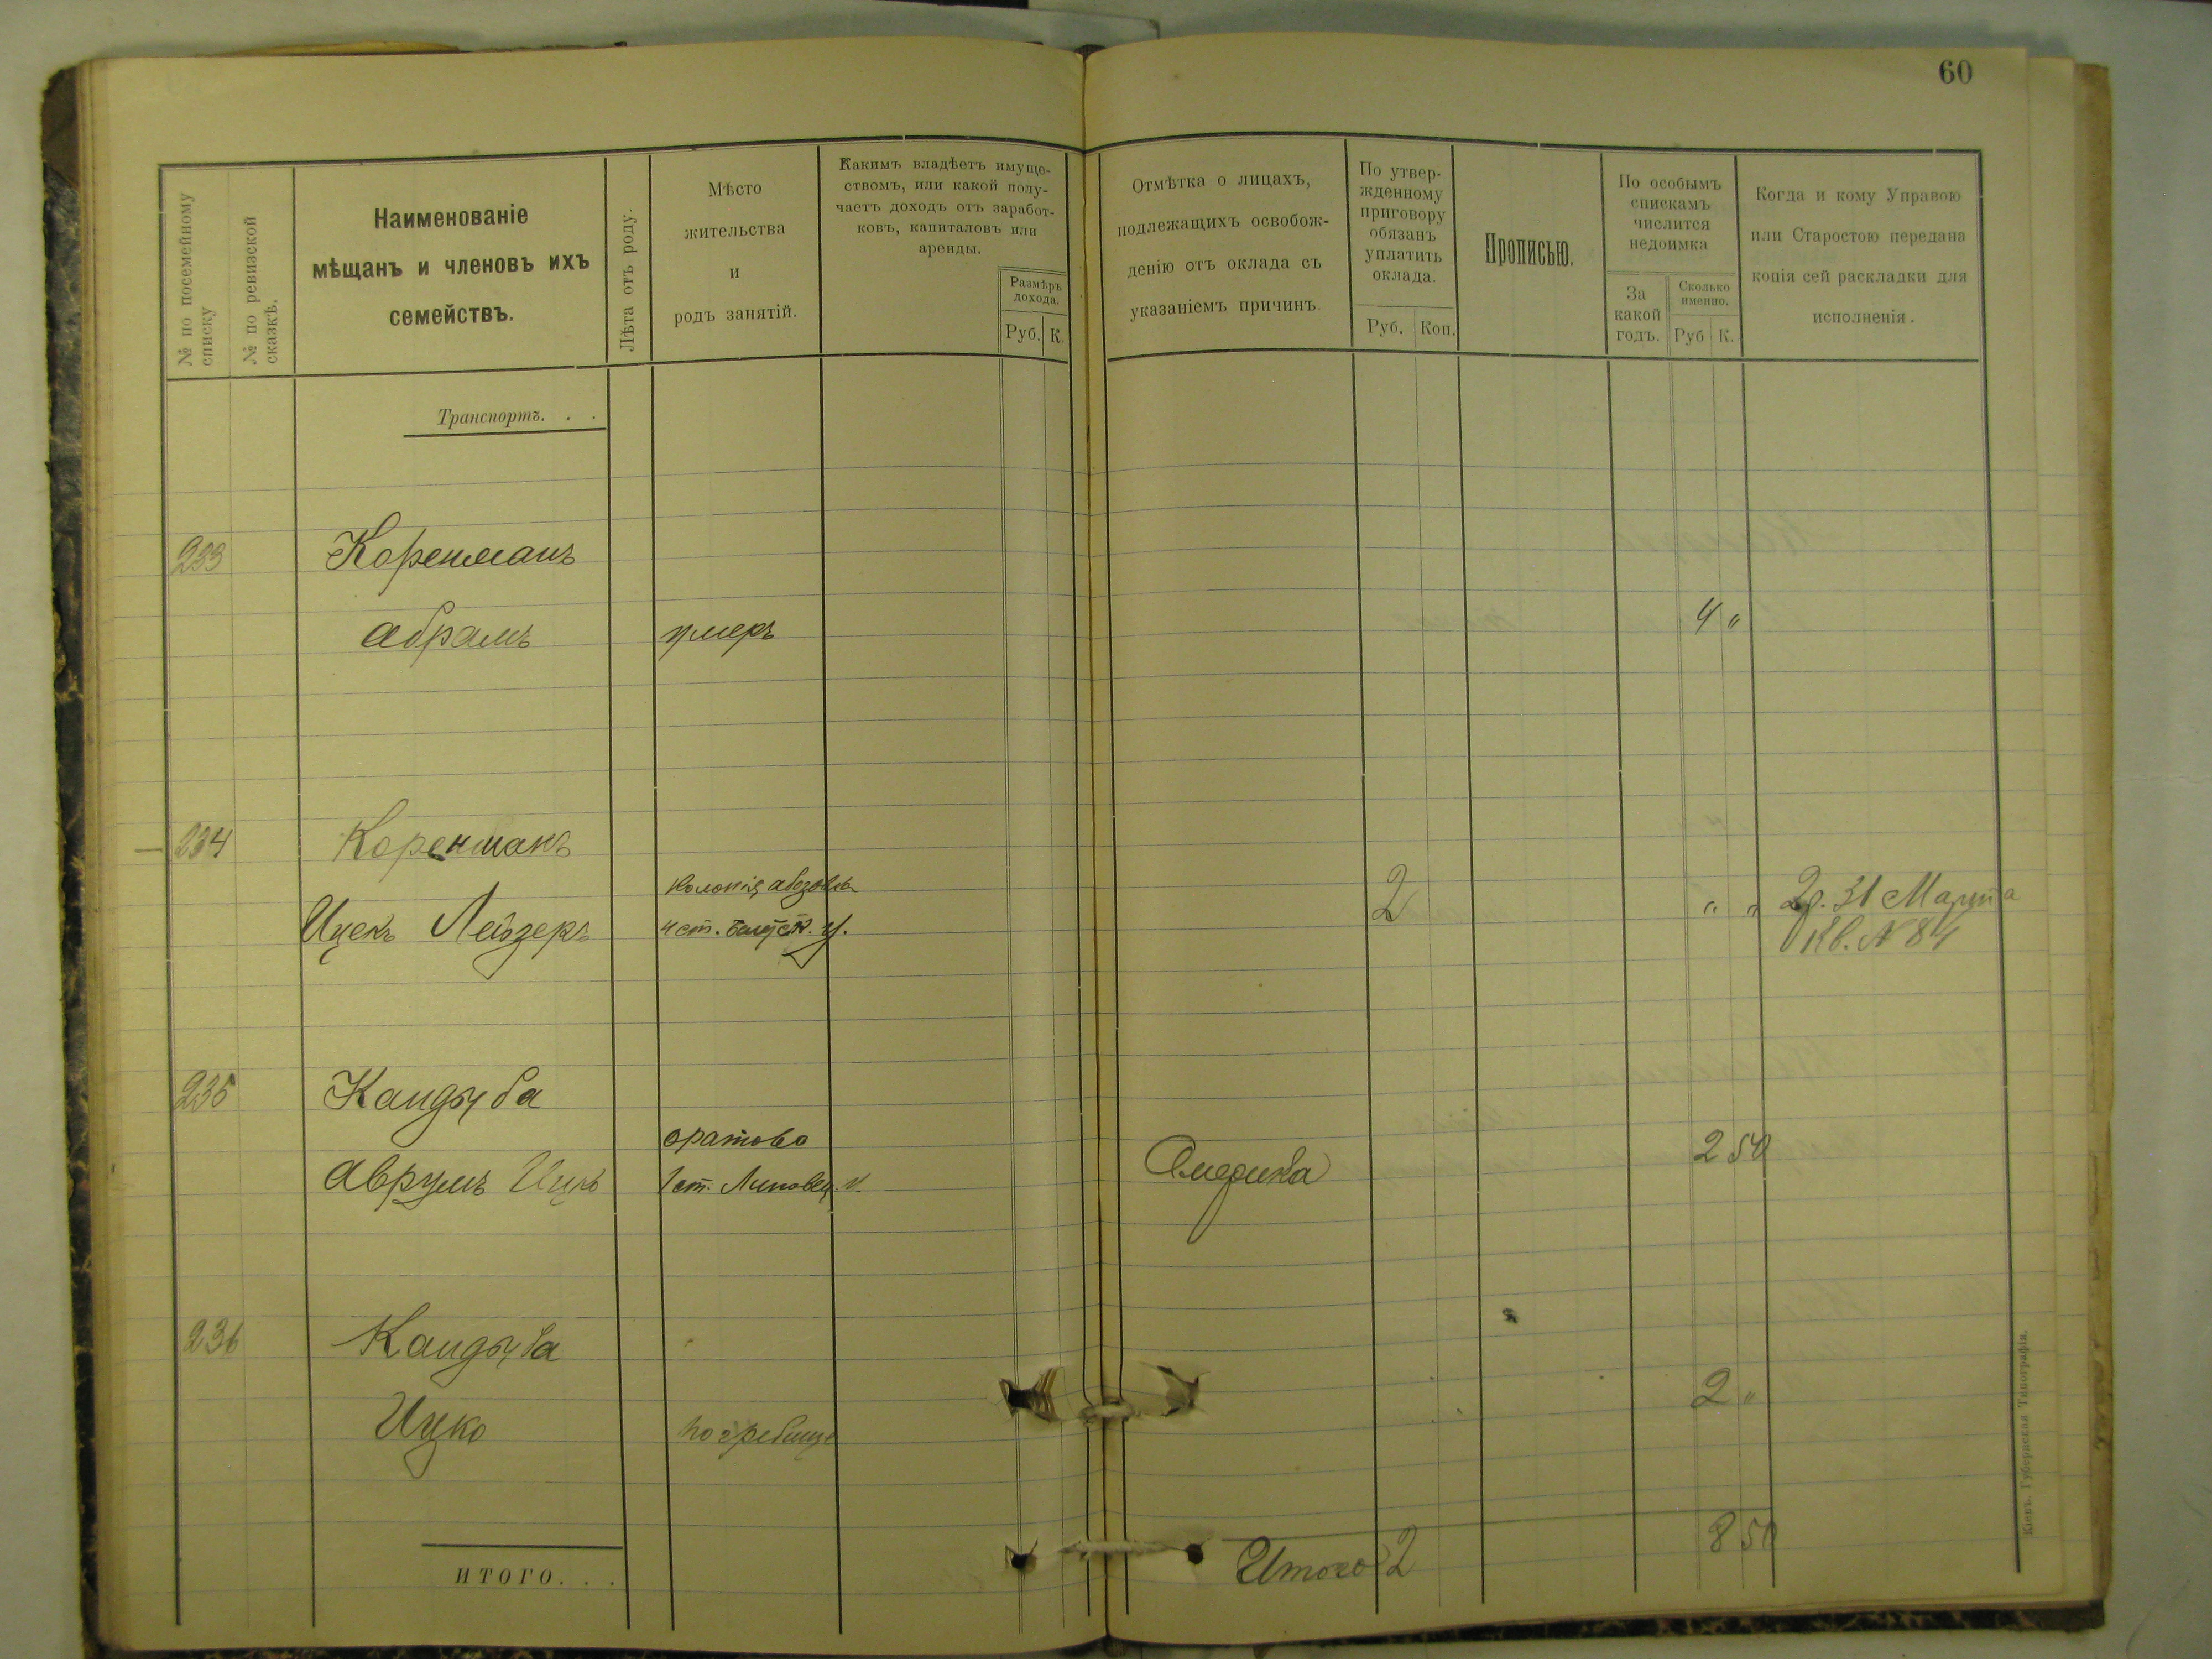 60
№ по посемейному списку
№ по ревизской сказкѣ.
Наименованіе
мѣщанъ и членовъ ихъ
семействъ.
Лѣта отъ роду.
Мѣсто
жительства
и
родъ занятій.
Какимъ владѣетъ имуще-
ствомъ, или какой полу-
чаетъ доходъ отъ заработ-
ковъ, капиталовъ или
аренды.
Размѣръ
дохода.
Руб. К.
Отмѣтка о лицахъ,
подлежащихъ освобож-
денію отъ оклада съ
указаніемъ причинъ.
По утвер-
жденному
приговору
обязанъ
уплатить
оклада.
Руб. Коп.
Прописью.
По особымъ
спискамъ
числится
недоимка
За
какой
годъ.
Сколько
именно.
Руб К.
Когда и кому Управою
или Старостою передана
копія сей раскладки для
исполненія.
Транспортъ. . .
233 Коренманъ
Абрамъ умеръ 4 "
234 Коренманъ
колонія
Ицекъ Лейзеръ 4 ст. у. 2 " " 2р. 31 Марта
Кв. № 84
235 Кандыба
оратово 2 50
Аврумъ Ицко 1 ст. Липовец. у. Америка
236 Кандыба
2 "
Ицко погребище
8 50
Итого 2
ИТОГО. . .
Кіевъ. Губернская Типографія.